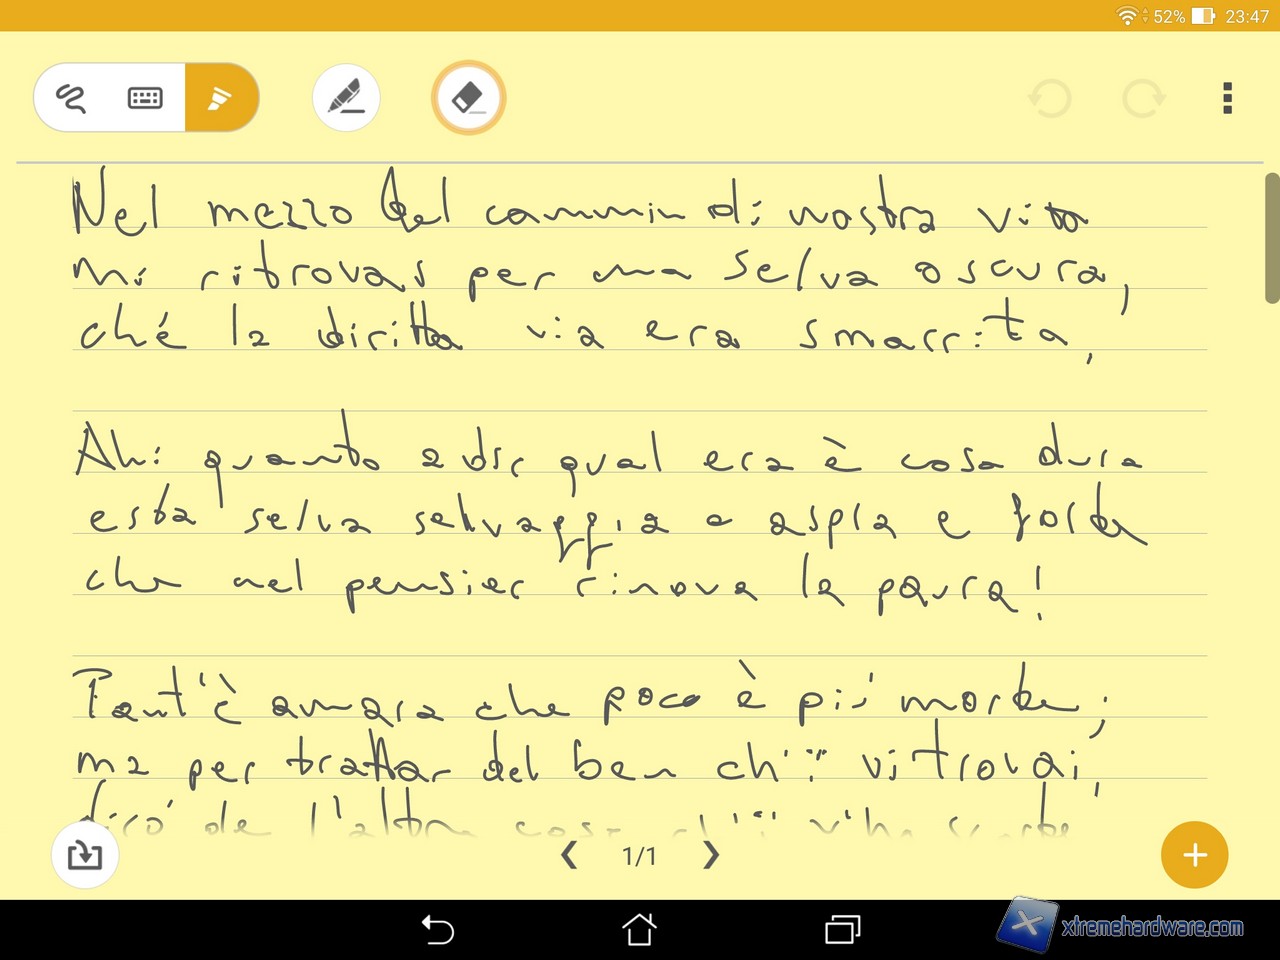 52% 23:47
Nel mezzo del cammin di nostra vita
mi ritrovai per una selva oscura,
ché la diritta via era smarrita,
Ahi quanto a dir qual era è cosa dura
esta selva selvaggia e aspra e forte
che nel pensier rinova la paura!
Tant'è amara che poco è più morte;
ma per trattar del ben ch'i' vi trovai,
dirò de l'altre cose ch'i' v'ho scorte
1/1
xtremehardware.com